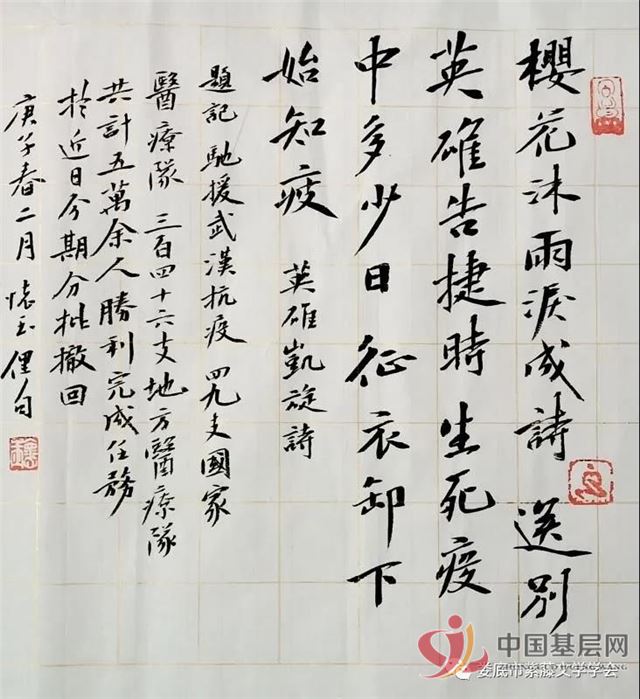 櫻花沐雨淚成詩 送別
英雄告捷時生死疫
中多少日征衣卸下
始知疲 英雄凱旋詩
題記 馳援武漢抗疫 四九支國家
醫療隊 三百四十六支地方醫療隊
共計五萬余人勝利完成任務
於近日分期分批撤回
庚子春二月 懷玉俚句
中国基层网
娄底市紫藤文学学会